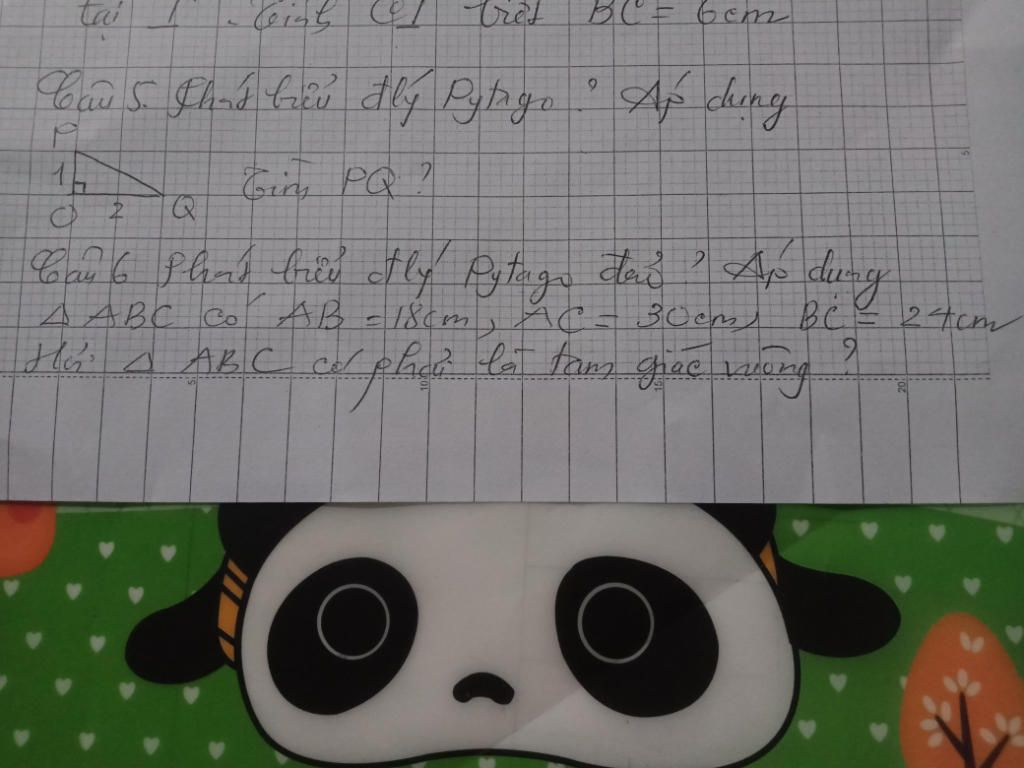 tại I . Tính CI biết BC = 6cm
Câu 5. Phát biểu đlý Pytago ? Áp dụng
P
1
O 2 Q
Tìm PQ ?
Câu 6 Phát biểu đlý Pytago đảo ? Áp dụng
Δ ABC có AB = 18cm, AC = 30cm, BC = 24cm
Hỏi Δ ABC có phải là tam giác vuông ?
5
5
10
15
20